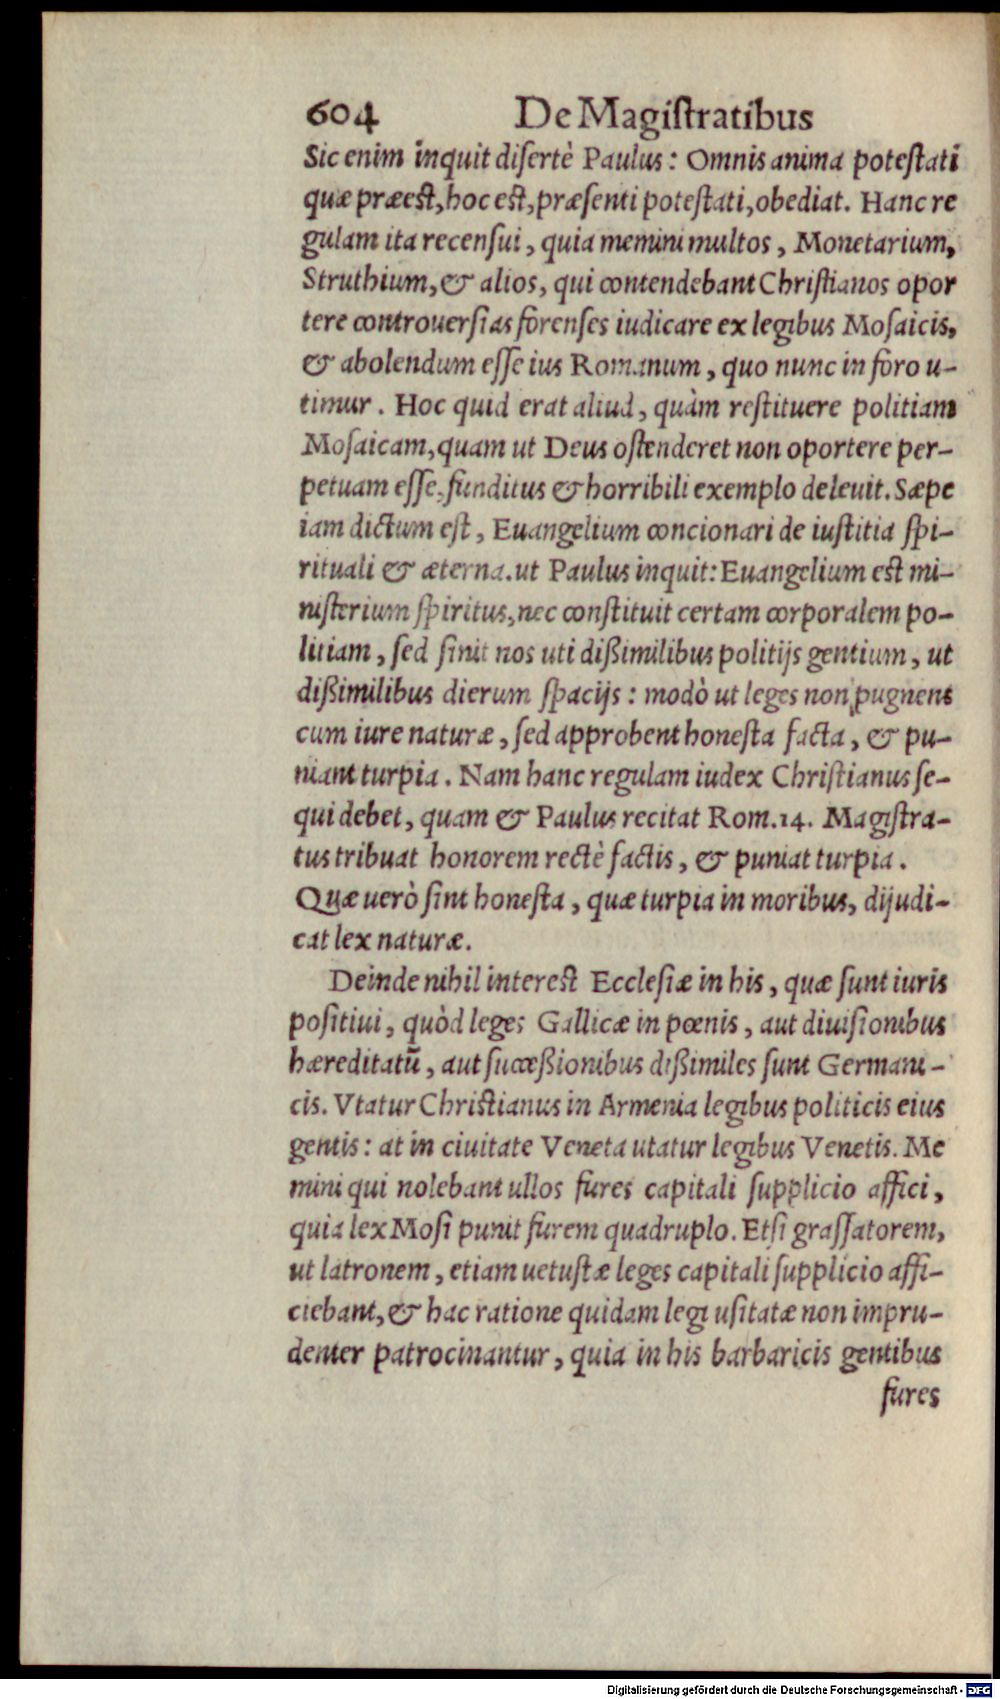 604 De Magiſtratibus
Sic enim inquit diſertè Paulus: Omnis anima poteſtati
quæ præeſt, hoc eſt, præſenti poteſtati, obediat. Hanc re
gulam ita recenſui, quia memini multos, Monetarium,
Struthium, & alios, qui contendebant Chriſtianos opor
tere controuerſias forenſes iudicare ex legibus Moſaicis,
& abolendum eſſe ius Romanum, quo nunc in foro u-
timur. Hoc quid erat aliud, quàm reſtituere politiam
Moſaicam, quam ut Deus oſtenderet non oportere per-
petuam eſſe, funditus & horribili exemplo deleuit. Sæpe
iam dictum eſt, Euangelium concionari de iuſtitia ſpi-
rituali & æterna. ut Paulus inquit: Euangelium eſt mi-
niſterium ſpiritus, nec conſtituit certam corporalem po-
litiam, ſed ſinit nos uti dißimilibus politijs gentium, ut
dißimilibus dierum ſpacijs: modò ut leges non pugnent
cum iure naturæ, ſed approbent honeſta facta, & pu-
niant turpia. Nam hanc regulam iudex Chriſtianus ſe-
qui debet, quam & Paulus recitat Rom.14. Magiſtra-
tus tribuat honorem rectè factis, & puniat turpia.
Quæ uerò ſint honeſta, quæ turpia in moribus, dijudi-
cat lex naturæ.
Deinde nihil intereſt Eccleſiæ in his, quæ ſunt iuris
poſitiui, quòd leges Gallicæ in pœnis, aut diuiſionibus
hæreditatū, aut ſucceßionibus dißimiles ſunt Germani-
cis. Vtatur Chriſtianus in Armenia legibus politicis eius
gentis: at in ciuitate Veneta utatur legibus Venetis. Me
mini qui nolebant ullos fures capitali ſupplicio affici,
quia lex Moſi punit furem quadruplo. Etſi graſſatorem,
ut latronem, etiam uetuſtæ leges capitali ſupplicio affi-
ciebant, & hac ratione quidam legi uſitatæ non impru-
denter patrocinantur, quia in his barbaricis gentibus
fures
Digitalisierung gefördert durch die Deutsche Forschungsgemeinschaft - DFG